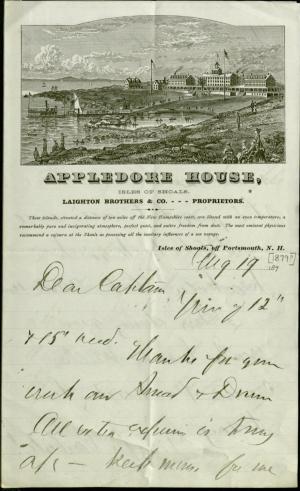 APPLEDORE HOUSE,
ISLES OF SHOALS.
LAIGHTON BROTHERS & CO. - - - PROPRIETORS.
These islands, situated a distance of ten miles off the New Hampshire coast, are blessed with an even temperature, a
remarkably pure and invigorating atmosphere, perfect quiet, and entire freedom from dust. The most eminent physicians
recommend a sojourn at the Shoals as possessing all the sanitary influences of a sea voyage.
Isles of Shoals, off Portsmouth, N. H.
Aug 19 187
[1879]
Dear Captain
12"
& 15" recd. Thanks for your
All extra expense is to my
a/c - Keep for me